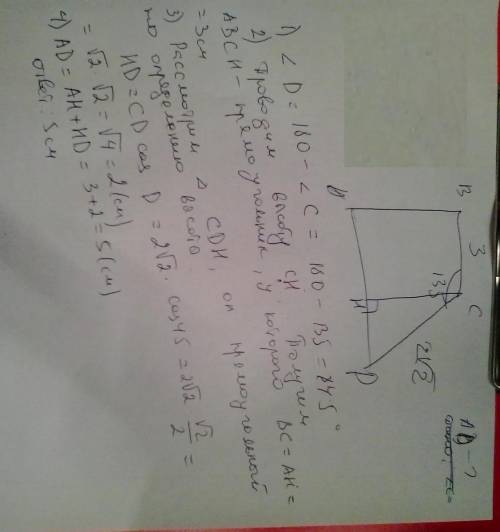 AD - ?
B 3 C
135
2√2
A H D
1) ∠D = 180 - ∠C = 180 - 135 = 45°
2) Проводим высоту CH. Получим
ABCH - прямоугольник, у которого BC = AH =
= 3 см
3) Рассмотрим △ CDH, он прямоугольный
по определению высота.
HD = CD cos D = 2√2 · cos 45 = 2√2 √2/2 =
= √2 · √2 = √4 = 2 (см)
4) AD = AH + HD = 3 + 2 = 5 (см)
ответ: 5 см